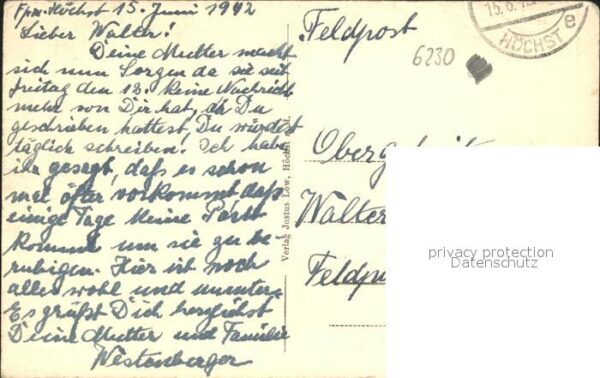 Ffm.-Höchst 15. Juni 1942
Lieber Walter!
Deine Mutter macht
sich nun Sorgen da sie seit
Freitag den 13. keine Nachricht
mehr von Dir hat, da Du
geschrieben hattest, Du würdest
täglich schreiben! Ich habe
ihr gesagt, daß es schon
mal öfter vorkommt daß
einige Tage keine Post
komme um sie zu be-
ruhigen. Hier ist noch
alles wohl und munter.
Es grüßt Dich herzlichst
Deine Mutter und Familie
Westenberger
Verlag Justus Löw, Höchst a. M.
Feldpost
6230
15.6.42
HÖCHST
Walter
Feldpo
privacy protection
Datenschutz